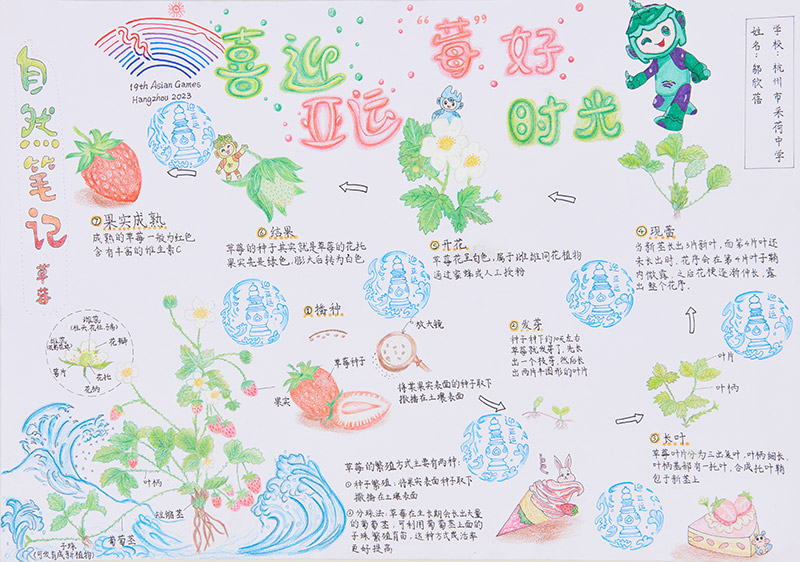 喜迎亚运
“莓”好时光
19th Asian Games
Hangzhou 2023
学校:杭州市采荷中学
姓名:邬欣蓓
自然笔记
草莓
①播种
放大镜
草莓种子
果实
将某果实表面的种子取下
撒播在土壤表面
②发芽
种子种下约10天左右
草莓就发芽了,先长
出一个枝芽,然后长
出两片半圆形的叶片
③长叶
草莓叶片分为三出复叶,叶柄细长,
叶柄基部有一托叶,合成托叶鞘
包于新茎上
叶片
叶柄
④现蕾
当新茎长出3片新叶,而第4片叶还
未长出时,花序会在第4片叶子鞘
内微露,之后花梗逐渐伸长,露
出整个花序。
⑤开花
草莓花呈白色,属于雌雄同花植物
通过蜜蜂或人工授粉
⑥结果
草莓的种子其实就是草莓的花托
果实先是绿色,膨大后转为白色
⑦果实成熟
成熟的草莓一般为红色
含有丰富的维生素C
雌蕊
雄蕊
花瓣
萼片
花托
花柄
叶柄
短缩茎
匍匐茎
子株
(可发育成新植物)
草莓的繁殖方式主要有两种:
①种子繁殖:将果实表面的种子取下
撒播在土壤表面
②分株法:草莓在生长期会长出大量
的匍匐茎,可利用匍匐茎上面的
子株繁殖育苗,这种方式成活率
更好提高